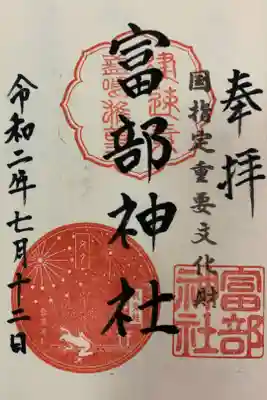 奉拝
国指定重要文化財
富部神社
富部神社
令和二年七月十二日